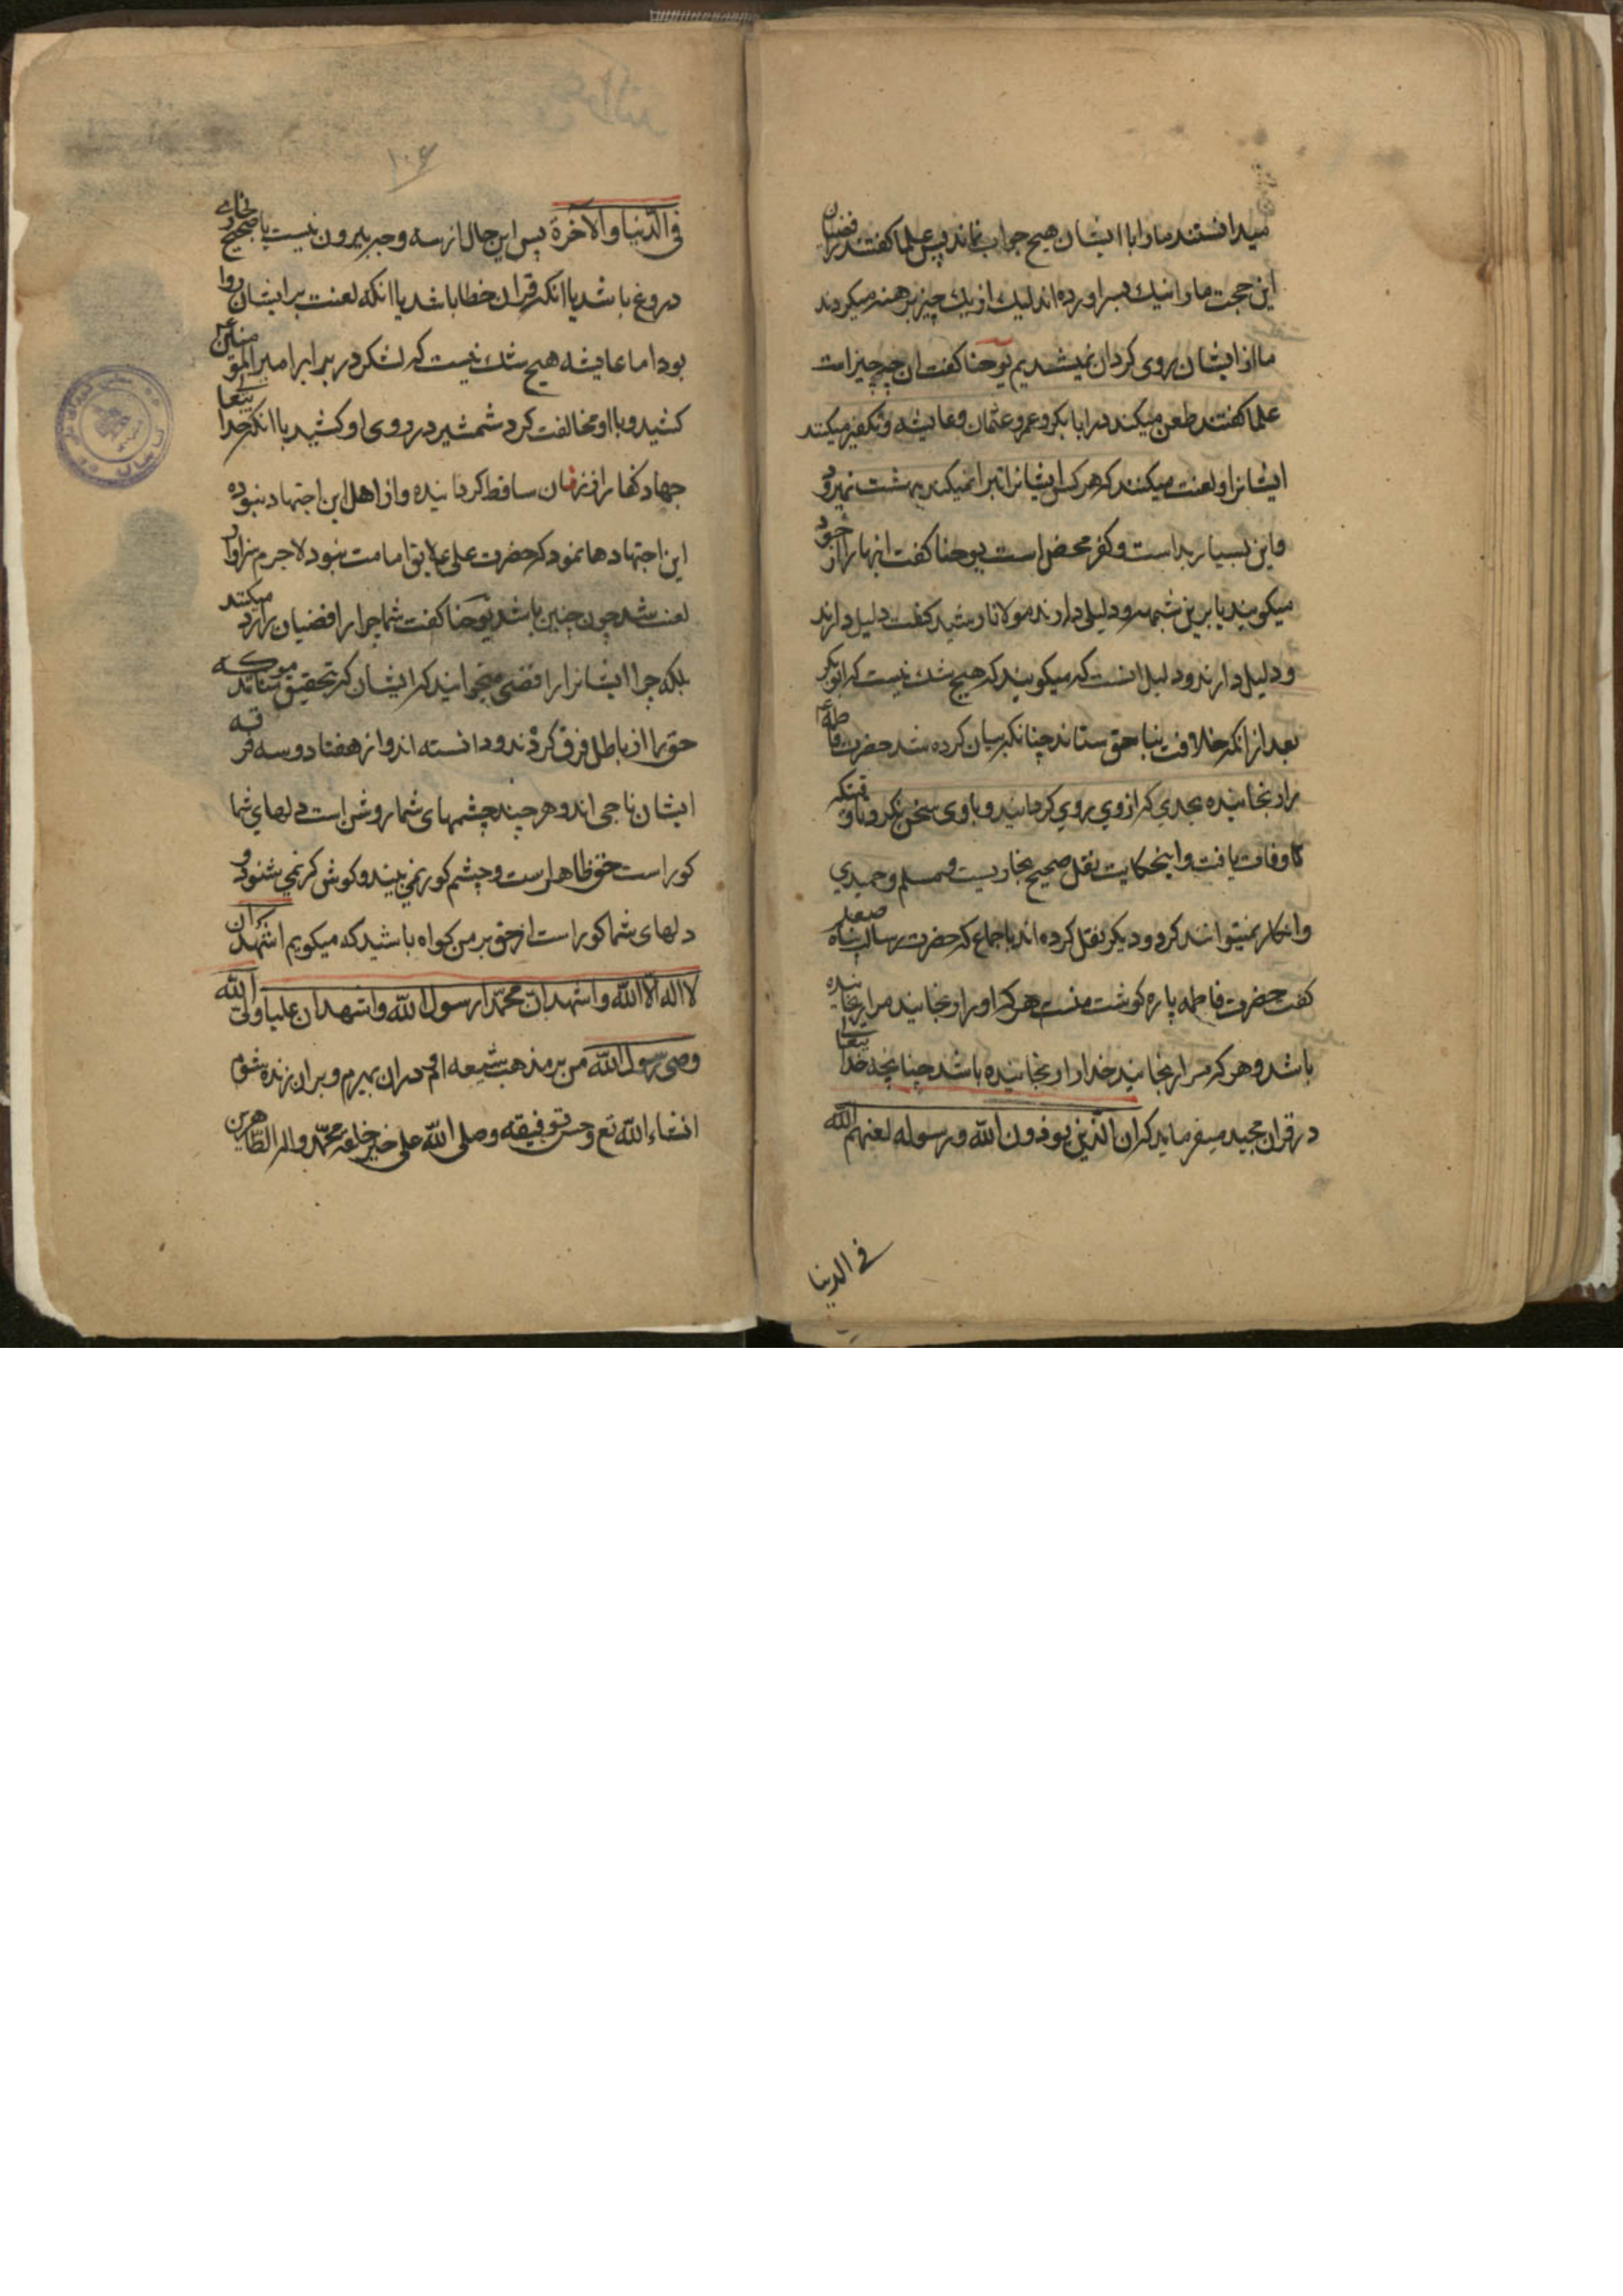 میدانستند ما را با ایشان هیچ جواب نماند پس علما گفتند رافضیان
این حجت ما را نیک بسر اورده اند لیک از یک چیز پرهیز میکردند
ما از ایشان روی گردان نمیشدیم یوحنا گفت ان چه چیز است
علما گفتند طعن میکنند در ابابکر و عمر و عثمان و عایشه و تکفیر میکنند
ایشانرا و لعنت میکنند که هر کس ایشانرا تبرا نمیکند به بهشت نمیرود
و این بسیار بد است و کفر محض است یوحنا گفت اینها را از خود
میکویند یا برین شبهه و دلیلی دارند مولانا رشید گفت دلیل دارند
و دلیل دارند و دلیل انست که میکویند که هیچ شک نیست که ابوبکر
بعد از انکه خلافت بناحق ستاند چنانکه بیان کرده شد حضرت فاطمه ع
را رنجانیده بحدی که از وی روی گردانید و با وی سخن نکرد تا وقتیکه
که وفات یافت و اینحکایت نقل صحیح بخاریست و مسلم و حمیدی
و انکار نمیتوانند کرد و دیکر نقل کرده اند باجماع که حضرت رسالت پناه صلعم
گفت حضرت فاطمه پاره گوشت منست هر که او را رنجانید مرا رنجانیده
باشد و هر که مرا رنجانید خدا را رنجانیده باشد چنانچه خدا یتعالی
در قران مجید میفرماید که ان الذین یوذون الله و رسوله لعنهم الله
فی الدنیا
۱۰۶
فی الدنیا والاخرة پس این حال از سه وجه بیرون نیست یا صحیح بخاری
دروغ باشد یا انکه قران خطا باشد یا انکه لعنت بر ایشان روا
بود اما عایشه هیچ شک نیست که لشکر در برابر امیر المؤمنین ع
کشید و با او مخالفت کرد شمشیر در روی او کشید با انکه خدا یتعالی
جهاد کفار از زنان ساقط گردانیده و از اهل این اجتهاد نبوده
این اجتهادها نمود که حضرت علی ع لایق امامت نبود لاجرم سزاوار
لعنت شد چون چنین باشد یوحنا گفت شما چرا رافضیان را رد میکنند
بلکه چرا ایشانرا رافضی میخوانید که ایشان که تحقیق
حق را از باطل فرق کردند و دانسته اند و از هفتاد و سه فرقه
ایشان ناجی اند و هر چند چشمهای شما روشن است دلهای شما
کور است حق ظاهر است و چشم کور نمی بیند و کوش کر نمی شنود و
دلهای شما کور است از حق بر من کواه باشید که میکویم اشهد ان
لا اله الا الله و اشهد ان محمدا رسول الله و اشهد ان علیا ولی الله
وصی رسول الله من بر مذهب شیعه ام و در ان بمیرم و بر ان زنده شوم
انشاء الله تع و حسن توفیقه و صلی الله علی خیر خلقه محمد و اله الطاهرین